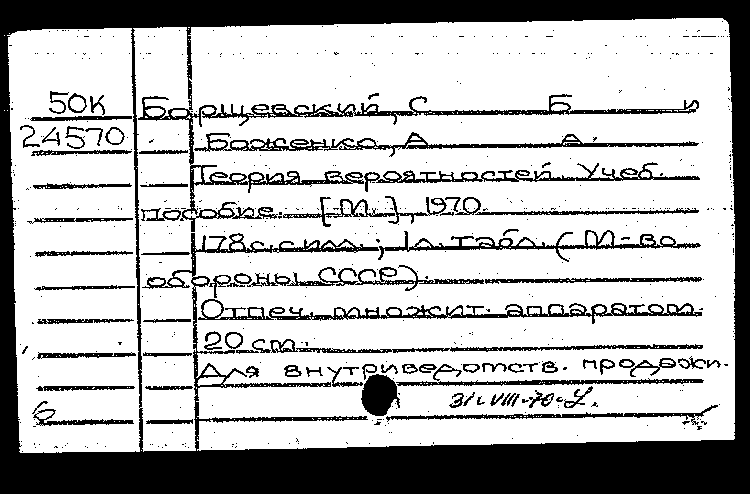 50К Борщевский, С Б и
24570 Боженко, А А.
Теория вероятностей. Учеб.
пособие. [М.], 1970.
178 с. с илл.; 1 л. табл. (М-во
обороны СССР).
Отпеч. множит. аппаратом.
20 cm.
Для внутриведомств. продажи.
31.VIII-70-
6